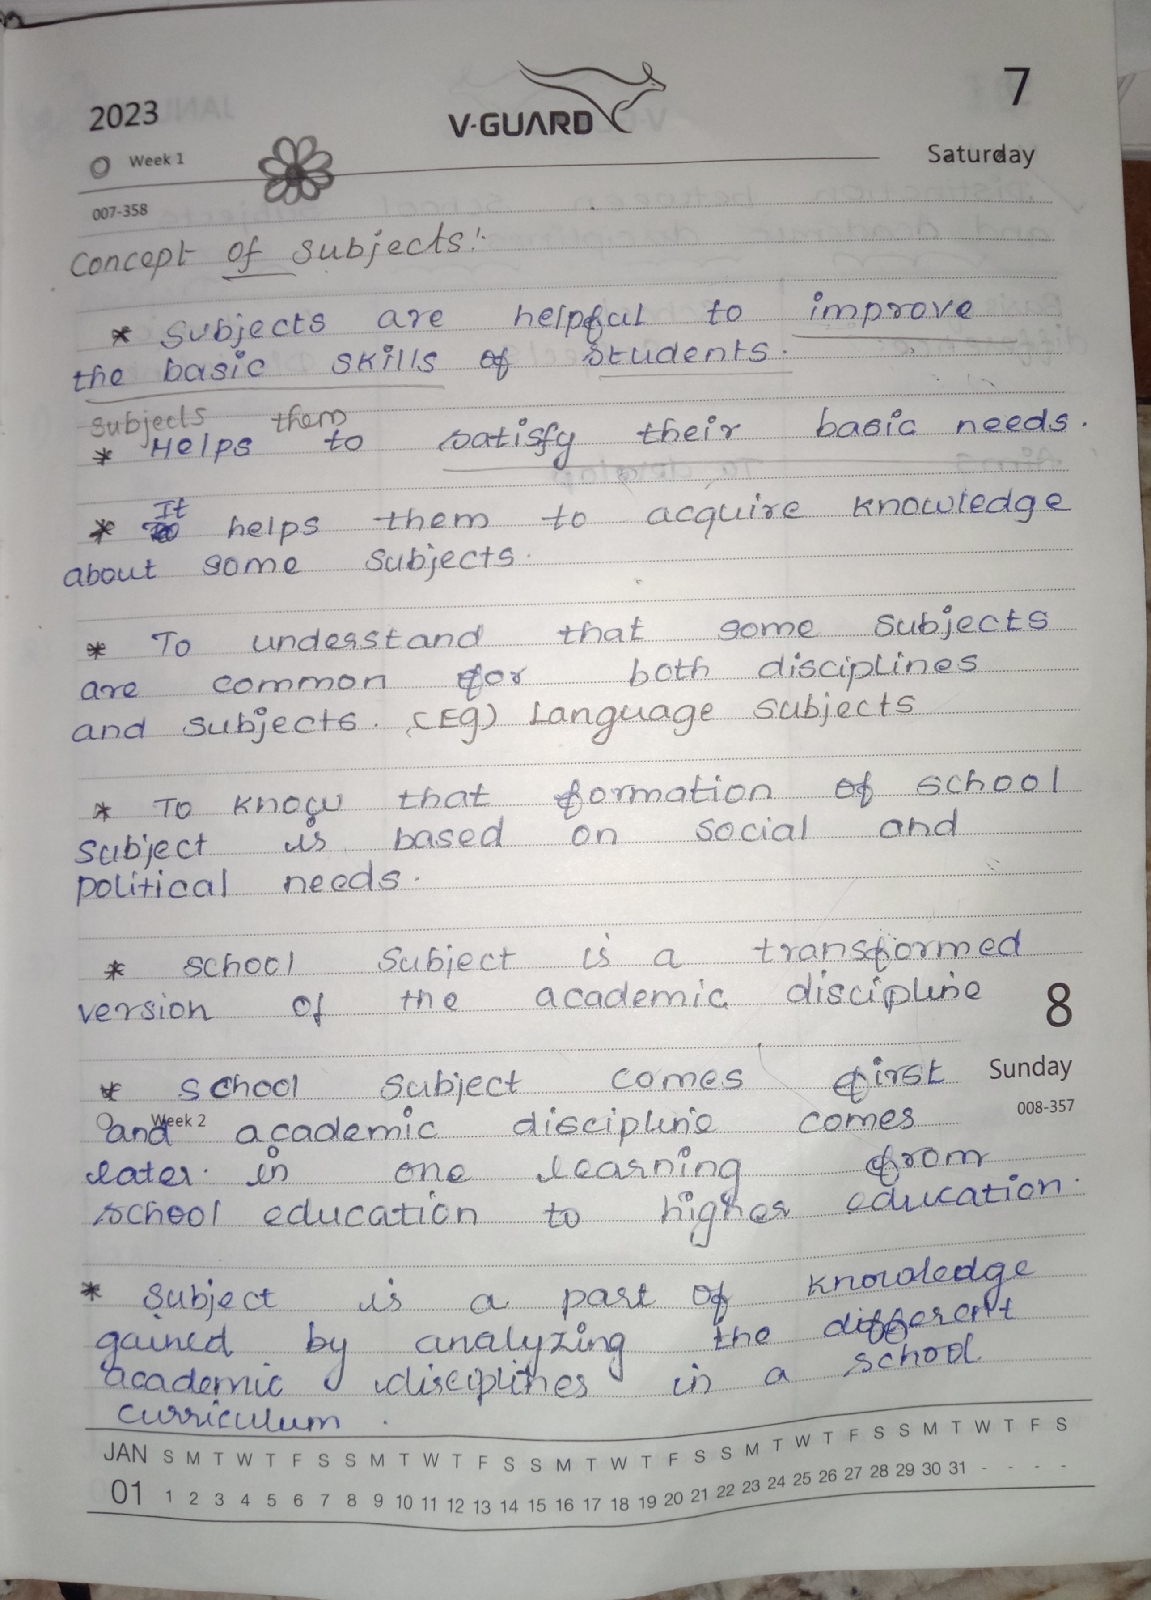 2023
V-GUARD
7
Week 1
Saturday
007-358
Concept of subjects:
* Subjects are helpful to improve
the basic skills of students.
subjects them
* Helps to satisfy their basic needs.
* It helps them to acquire knowledge
about some subjects.
* To understand that some subjects
are common for both disciplines
and subjects. (Eg) Language subjects
* To know that formation of school
subject is based on social and
political needs.
* School subject is a transformed
version of the academic discipline
8
* School subject comes first
Sunday
Week 2
008-357
and academic discipline comes
later. in one learning from
school education to higher education.
* Subject is a part of knowledge
gained by analyzing the different
academic disciplines in a school
curriculum.
JAN S M T W T F S S M T W T F S S M T W T F S S M T W T F S S M T W T F S
01 1 2 3 4 5 6 7 8 9 10 11 12 13 14 15 16 17 18 19 20 21 22 23 24 25 26 27 28 29 30 31 - - - -